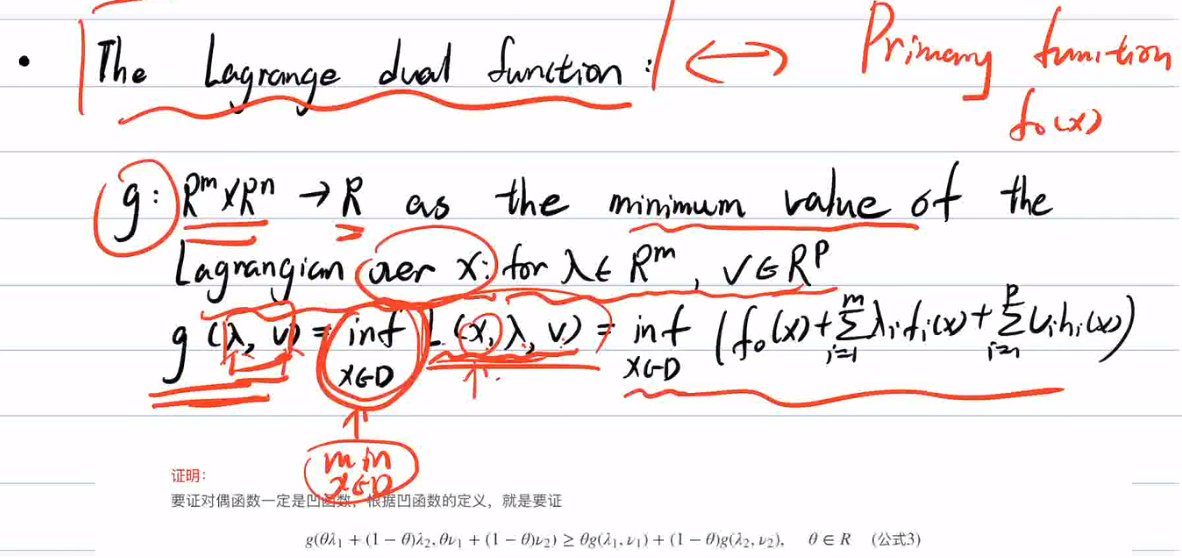 • The Lagrange dual function : ↔ Primary function
f₀(x)
g: Rᵐ×Rⁿ → R as the minimum value of the
Lagrangian over x: for λ∈Rᵐ, v∈Rᵖ
g(λ, v) = inf L(x, λ, v) = inf (f₀(x)+∑λᵢfᵢ(x)+∑vᵢhᵢ(x))
x∈D x∈D i=1 m i=1 p
min
x∈D
证明:
要证对偶函数一定是凹函数，根据凹函数的定义，就是要证
g(θλ₁ + (1 − θ)λ₂, θν₁ + (1 − θ)ν₂) ≥ θg(λ₁, ν₁) + (1 − θ)g(λ₂, ν₂), θ ∈ R (公式3)